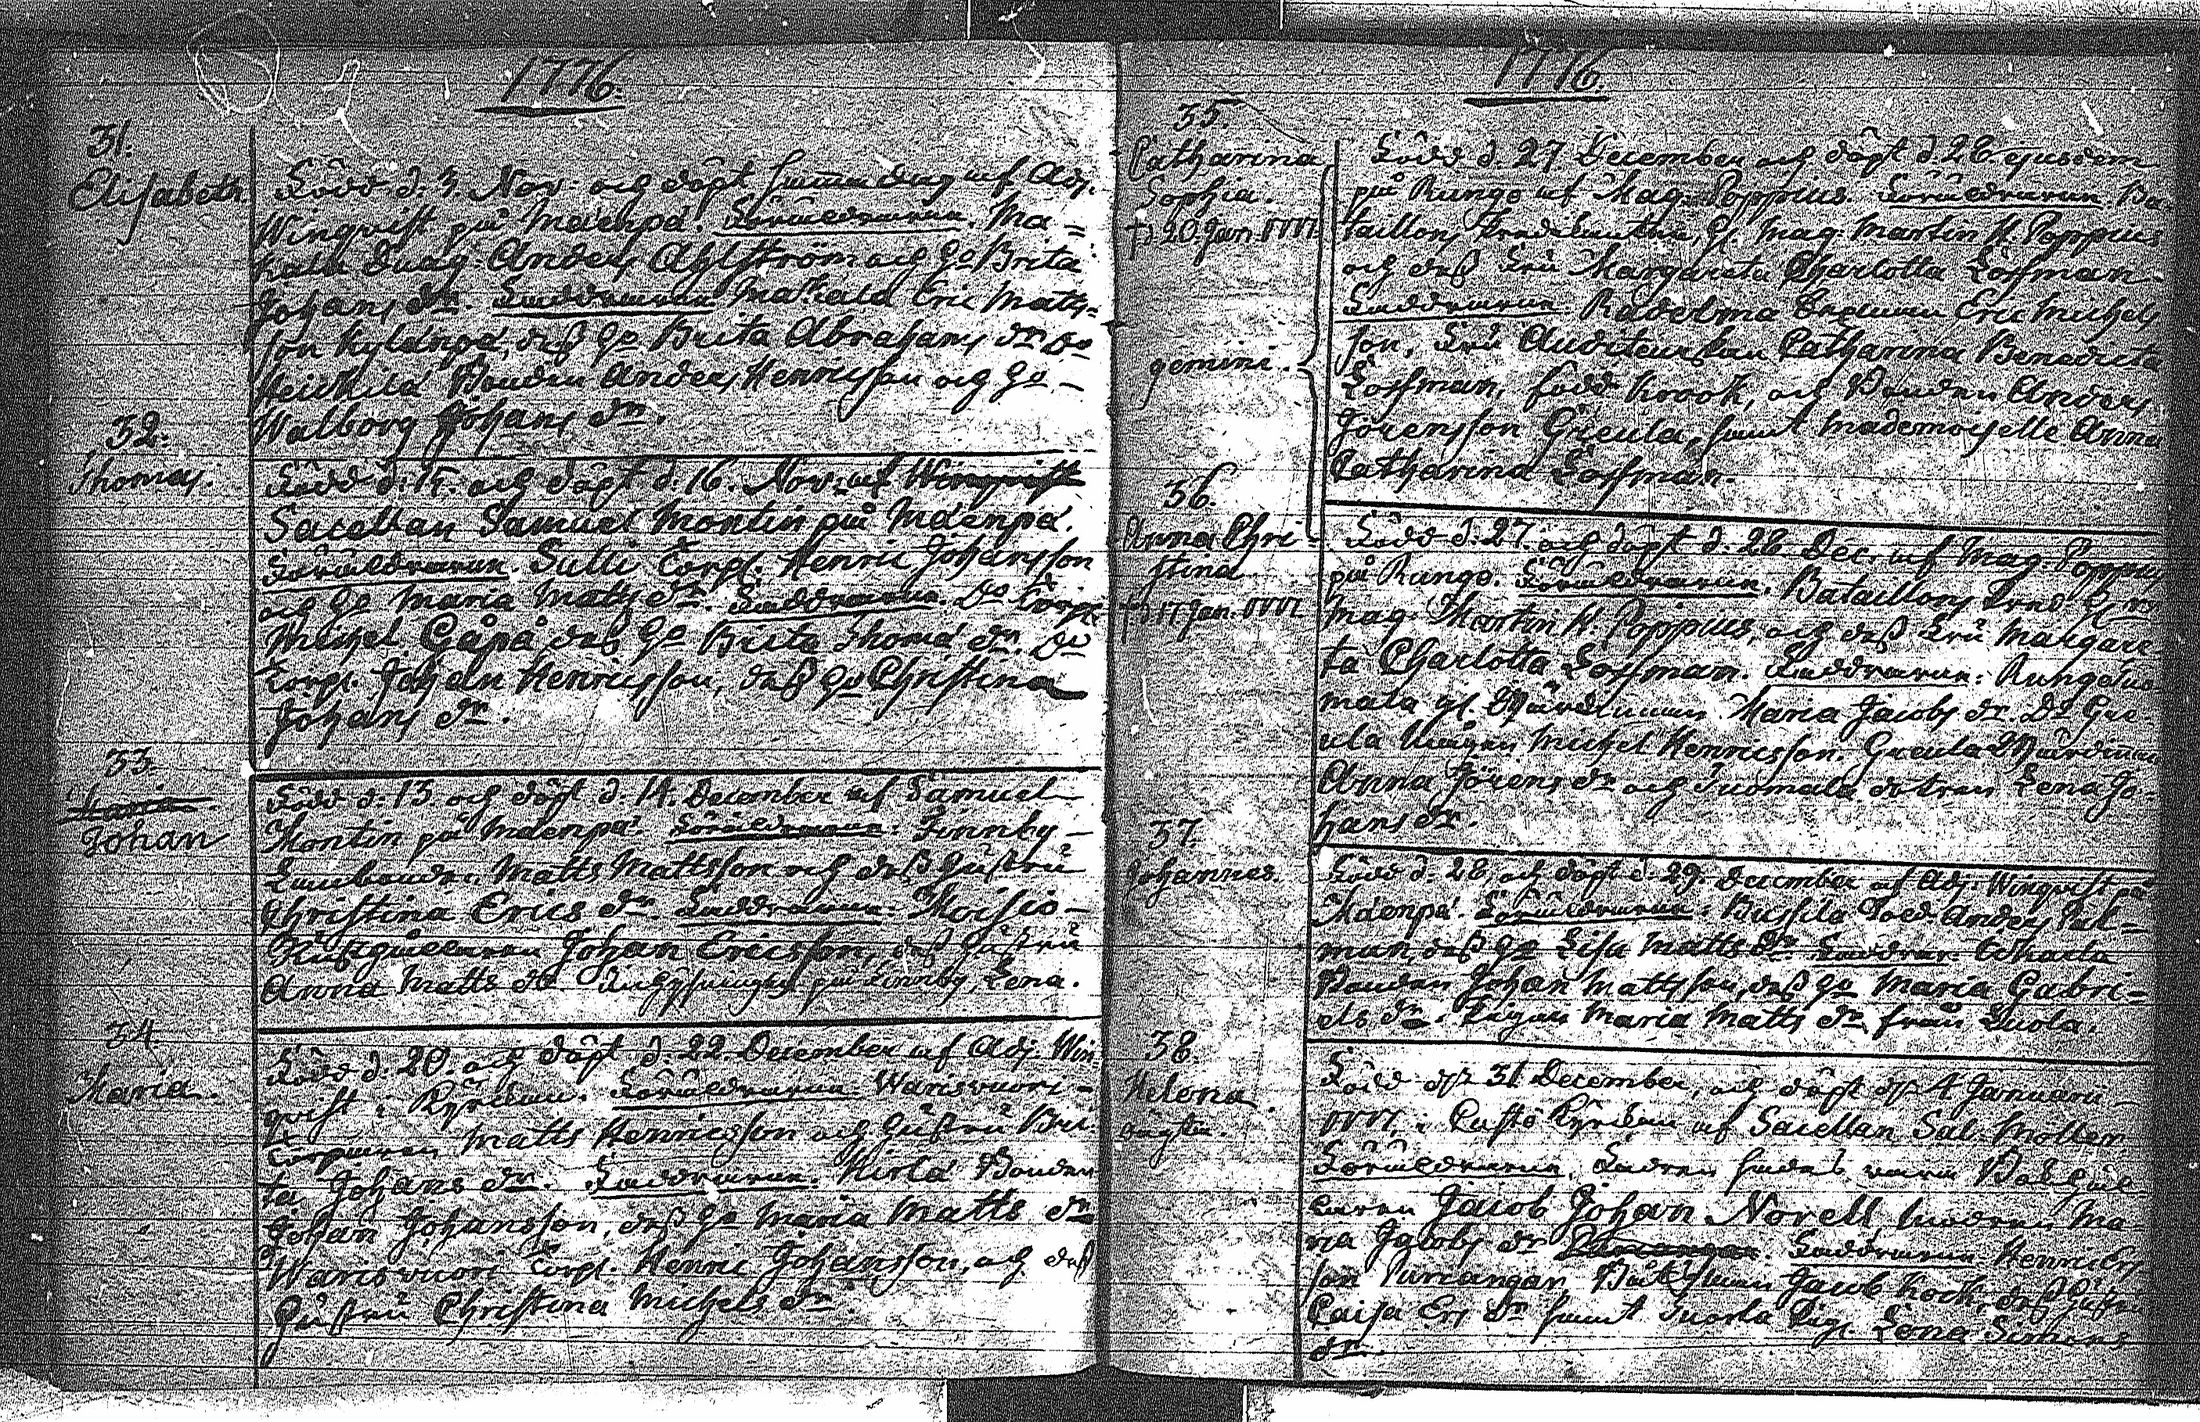 1776.
31.
Elisabeth.
Född d. 3. Nov. och döpt samma dag af Adj.
Winqvist på Mäenpä. Föräldrarna. Ma-
Anders Ahlström och Ho Brita
Johans dr. Faddrarna Mattala Eric Matts-
son Kylänpä, dess Ho Brita Abrahams dr Do
Heickilä Bonden Anders Henricsson och Ho
Walborg Johans dr.
32.
Thomas.
Född d. 15. och döpt d. 16. Nov. af Winqvist
Sacellan Samuel Montin på Mäenpä.
Föräldrarna. Sulli Torp. Henric Johansson
och Ho Maria Matts dr. Faddrarna. Do Torp.
Michel dess Ho Brita Thomä dr. Do
Torp. Johan Henricsson, dess Ho Christina
Johans dr.
33.
Maria
Johan
Född d. 13. och döpt d. 14. December af Samuel
Montin på Mäenpä. Föräldrarna. Finnby
Matts Mattsson och dess hustru
Christina Erics dr. Faddrarna. Moisio
Johan Ericsson, dess hustru
Anna Matts dr på Finnby, Lena.
34.
Maria.
Född d. 20. och döpt d. 22 December af Adj. Win
qvist i Kyrkan. Föräldrarna Warisvuori
Torparen Matts Henricsson och hustru Bri
ta Johans dr. Faddrarna. Kirlä Bonden
Johan Johansson, dess Ho Maria Matts dr
Warisvuori Torp. Henric Johansson, och dess
hustru Christina Michels dr.
1776.
35.
Catharina
Sophia.
† d. 20. Jan. 1777.
gemini.
Född d. 27 December och döpt d 28 ejusdem
på Rungo af Mag. Poppius. Föräldrarna Ba-
taillons Predikanten, H. Mag. Martin H. Poppius
och dess Fru Margareta Charlotta Forsman
Faddrarna Eric Michels
son, Fru Auditeurskan Catharina Benedicta
Forsman, född Krook, och Bonden Anders
Jörensson Greula, samt Mademoiselle Anna
Catharina Forsman.
36.
Anna Chri-
stina
† d. 17 Jan. 1777
Född d. 27. och döpt d. 28 Dec. af Mag. Poppius
på Rungo. Föräldrarna. Bataillons Pred. Hr
Mag. Martin H. Poppius, och dess Fru Margare
ta Charlotta Forsman. Faddrarna. Rungo
mala Maria Jacobs dr. Do Gre-
ula Michel Henricsson. Greula
Anna Jörens dr och Tuomala dotren Lena Jo-
hans dr.
37.
Johannes.
Född d. 28. och döpt d. 29. December af Adj. Winqvist på
Mäenpä. Föräldrarna. Bussila Sold. Anders
man, dess Ho Lisa Matts dr. Faddrar.
Bonden Johan Mattsson, dess Ho Maria Gabri-
els dr. Pigan Maria Matts dr från Luola.
38.
Helena
oägta.
Född d. 31 December, och döpt d. 4 Januarii
1777. i Kyrkan af Sacellan Sal. Moller
Föräldrarna. Fadren vara
Jacob Johan Norell, modren Ma-
ria Jacobs dr. Faddrarna. Henrics
son Puncangar, Båtsman Jacob Kock, dess hustru
Caisa Ers dr samt Suorla Pig. Lena Simons
dr.